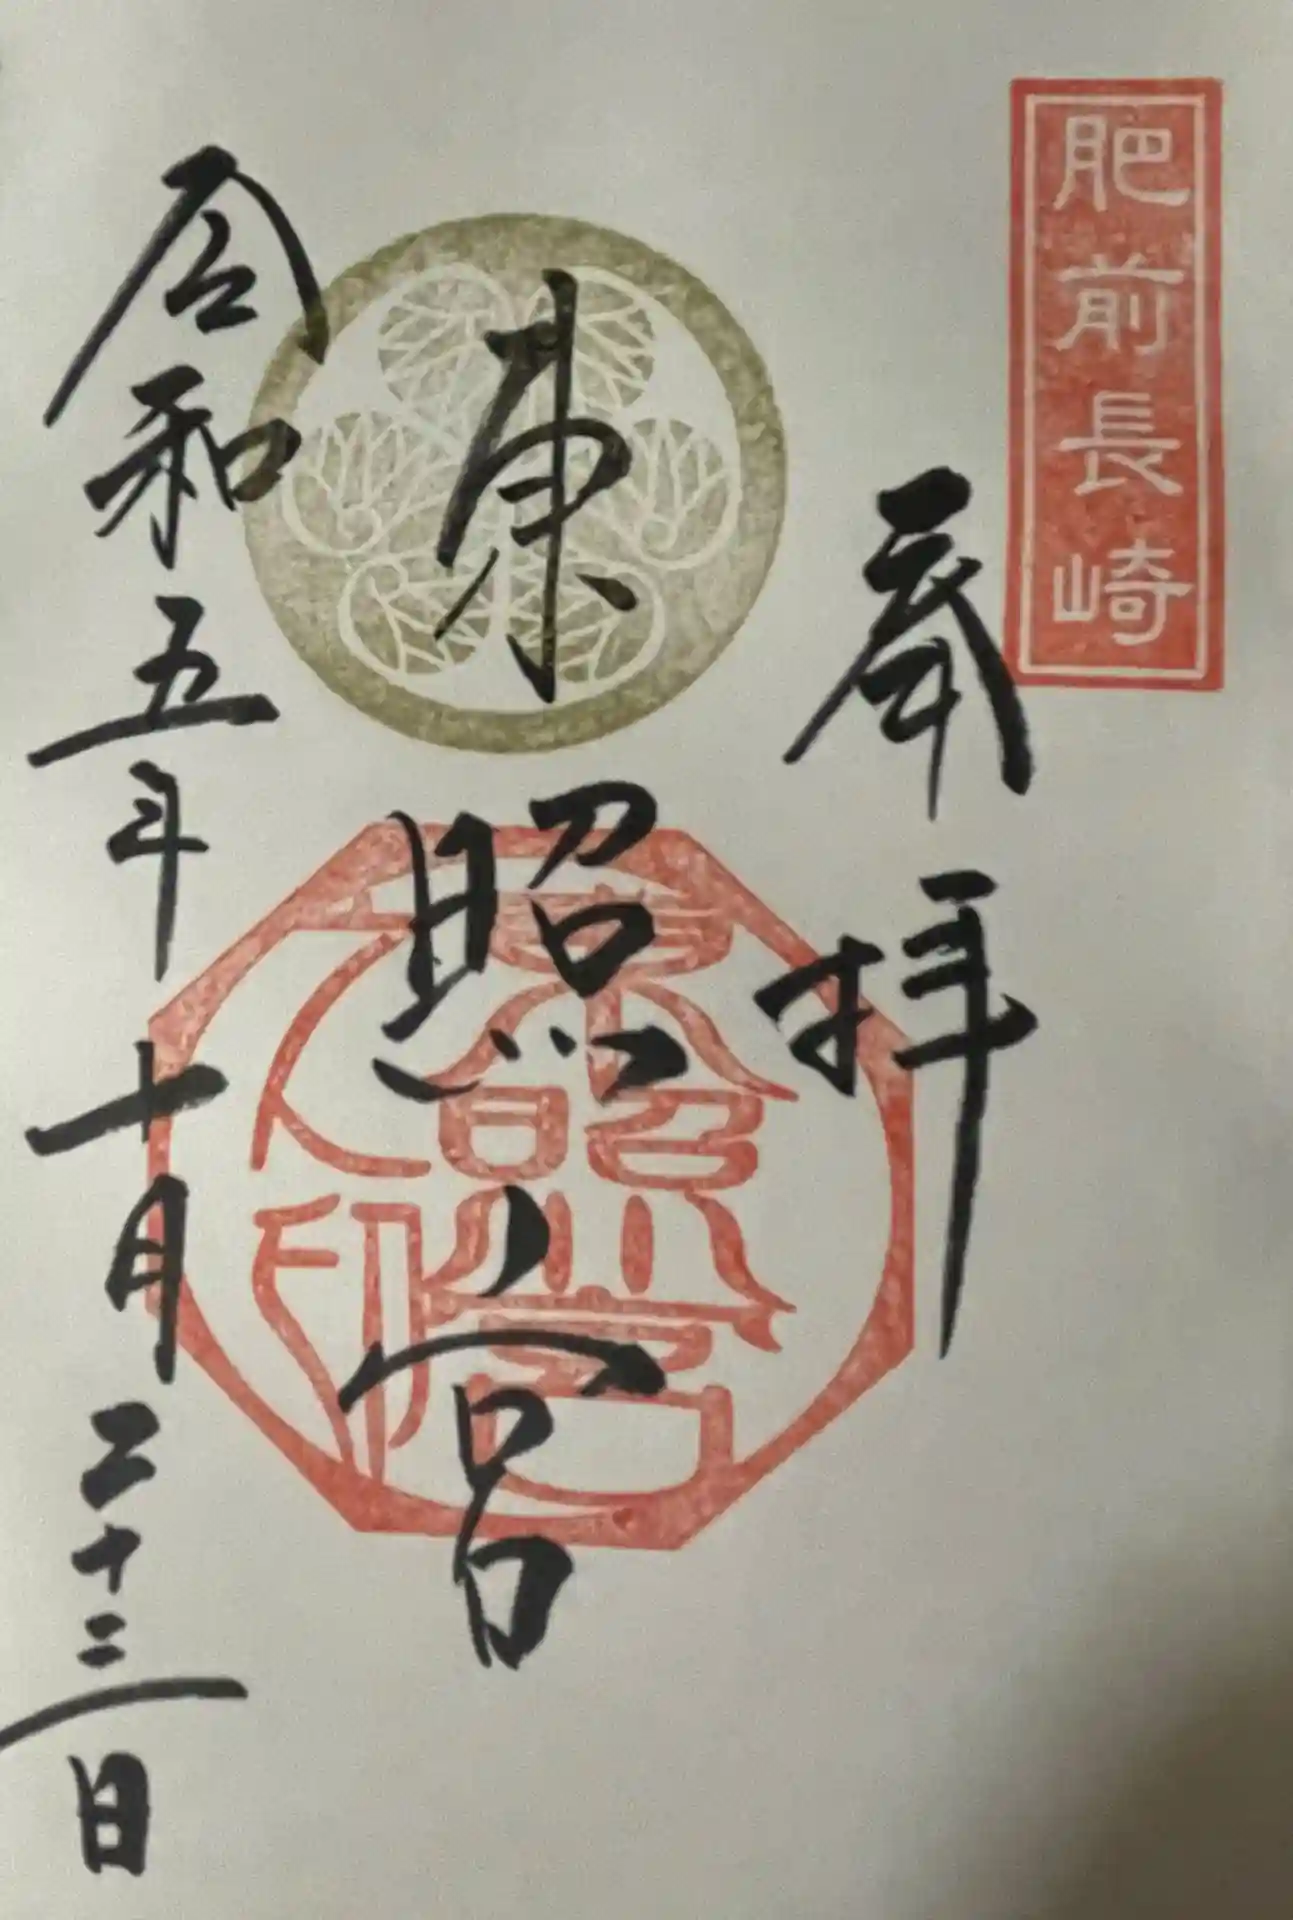 肥前長崎
奉拝
東照宮
東照宮之印
令和五年十月二十三日